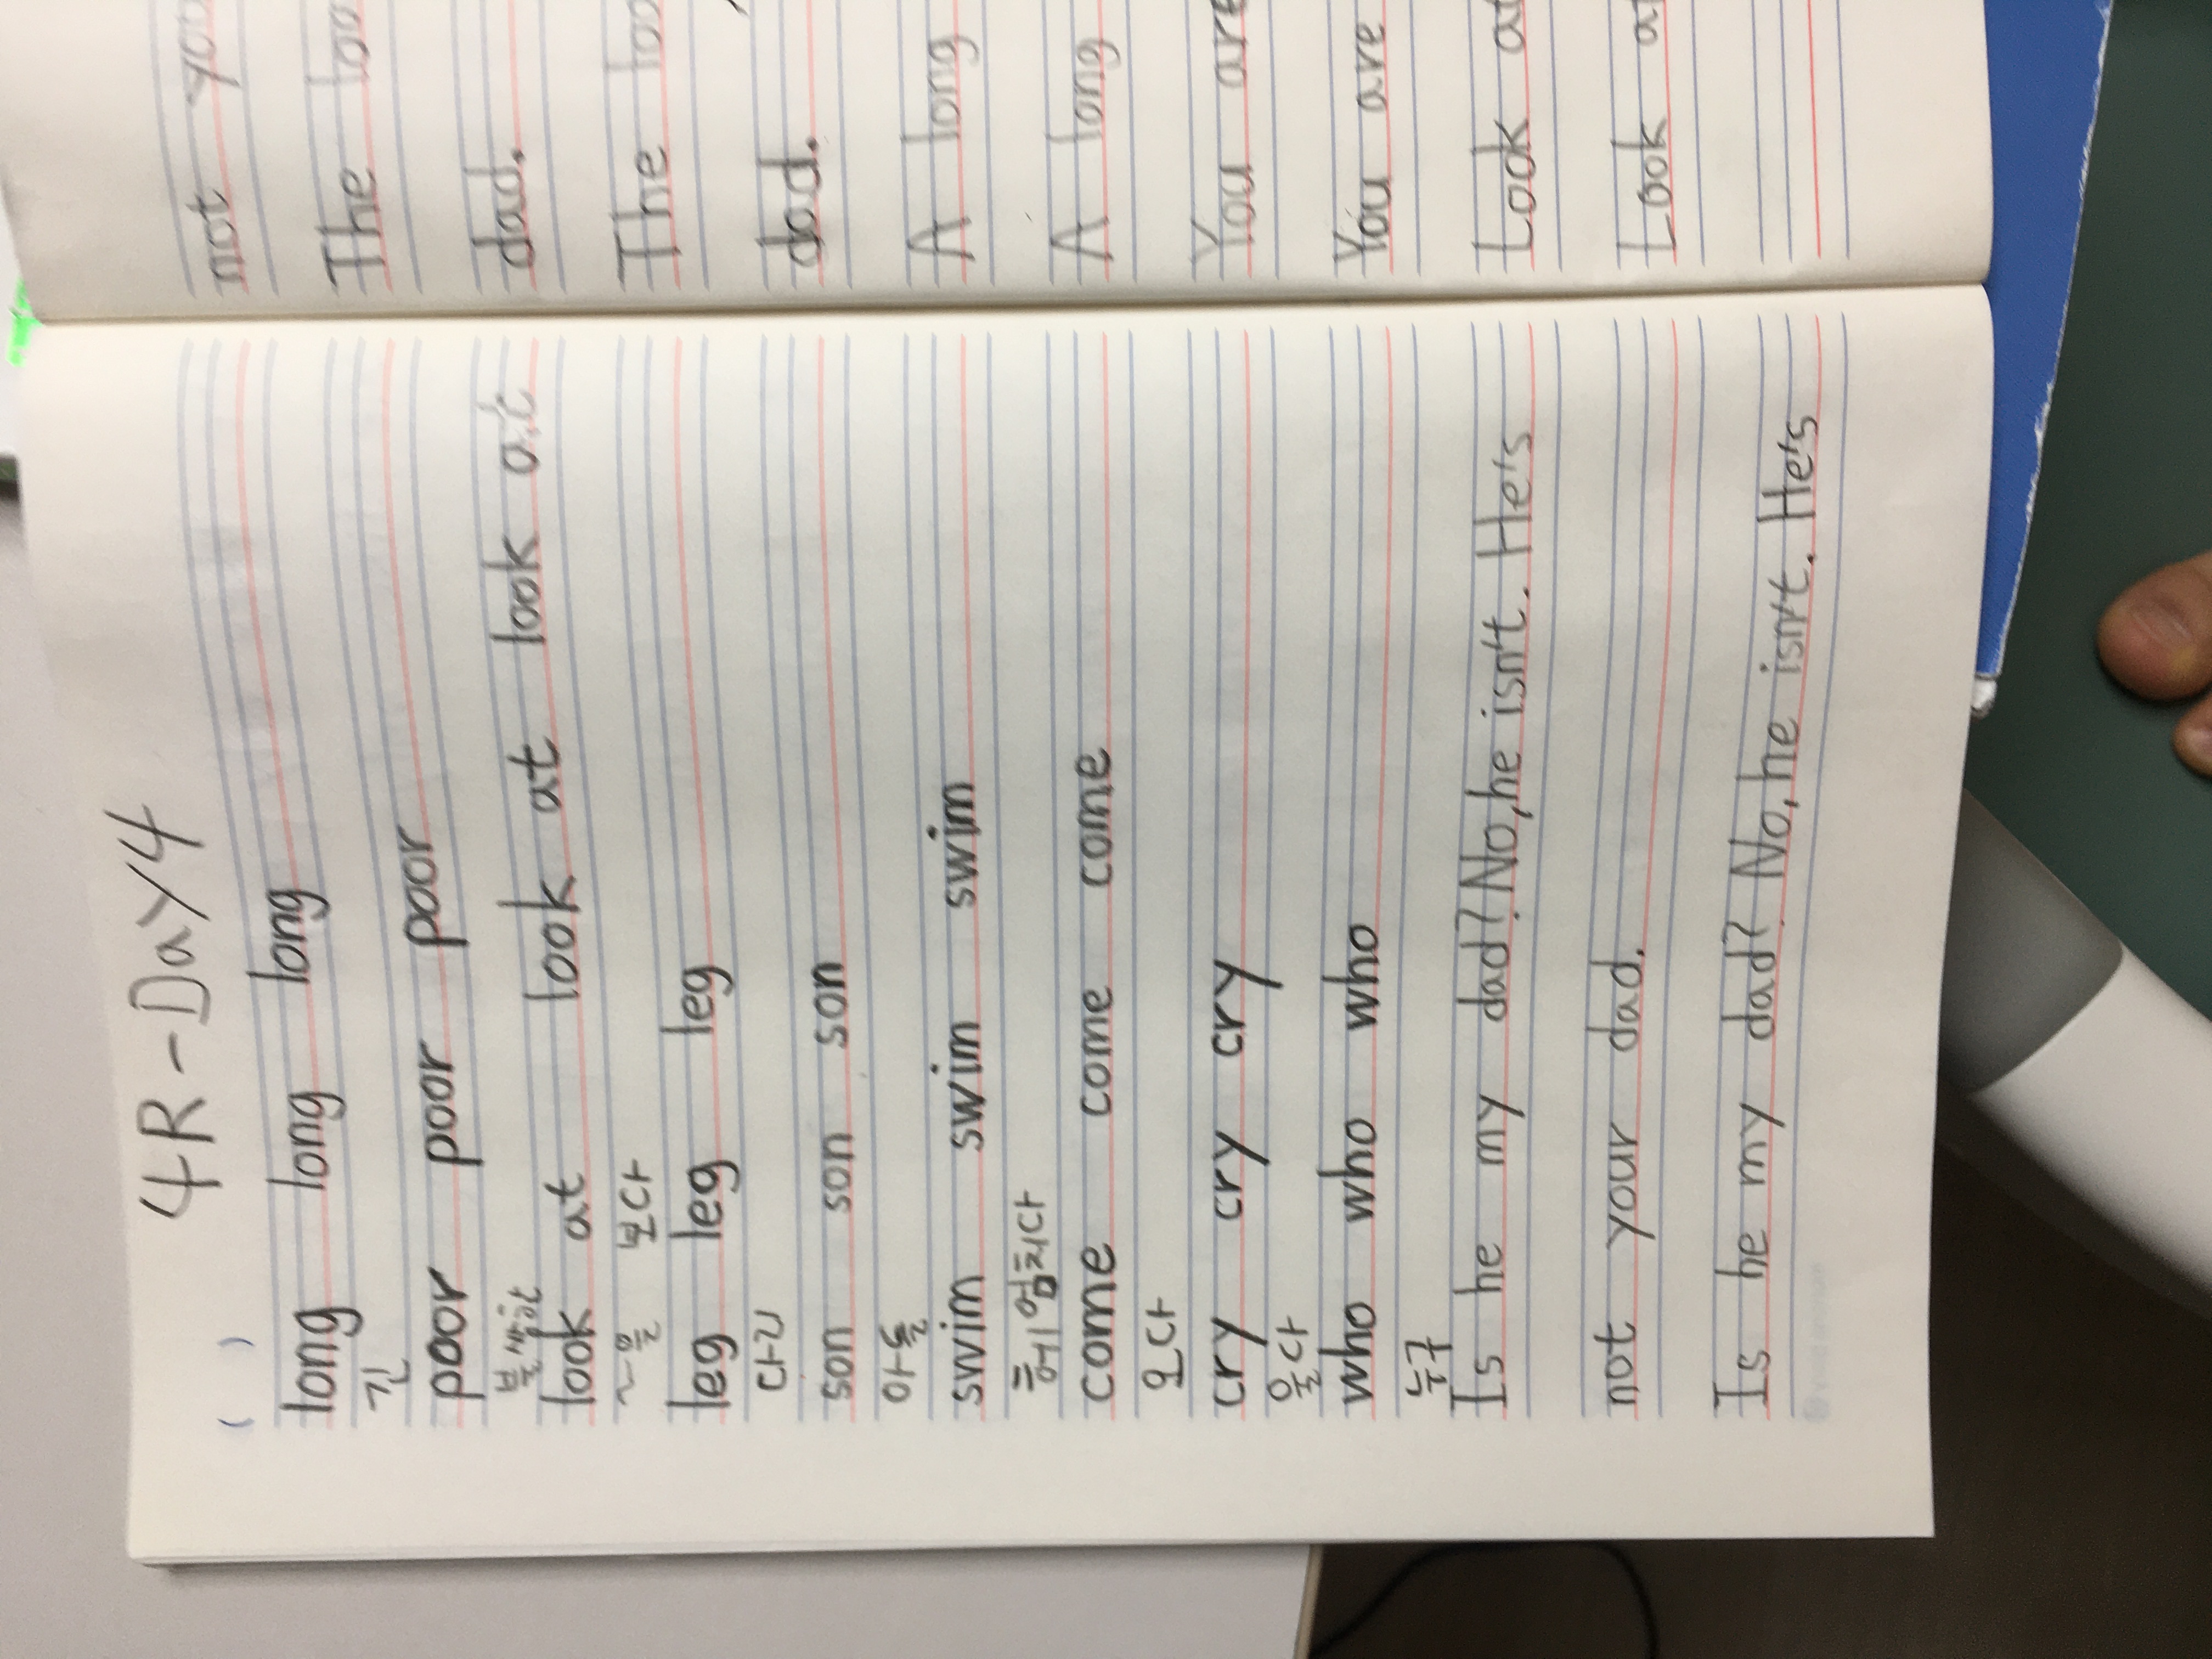 4R-Day4
( )
long long long
긴
poor poor poor
불쌍한
look at look at look at
~을 보다
leg leg leg
다리
son son son
아들
swim swim swim
헤엄치다
come come come
오다
cry cry cry
울다
who who who
누구
Is he my dad? No, he isn't. He's
not your dad.
Is he my dad? No, he isn't. He's
not you
The
dad.
The
dad.
A long
A long
You are
You are
Look at
Look at